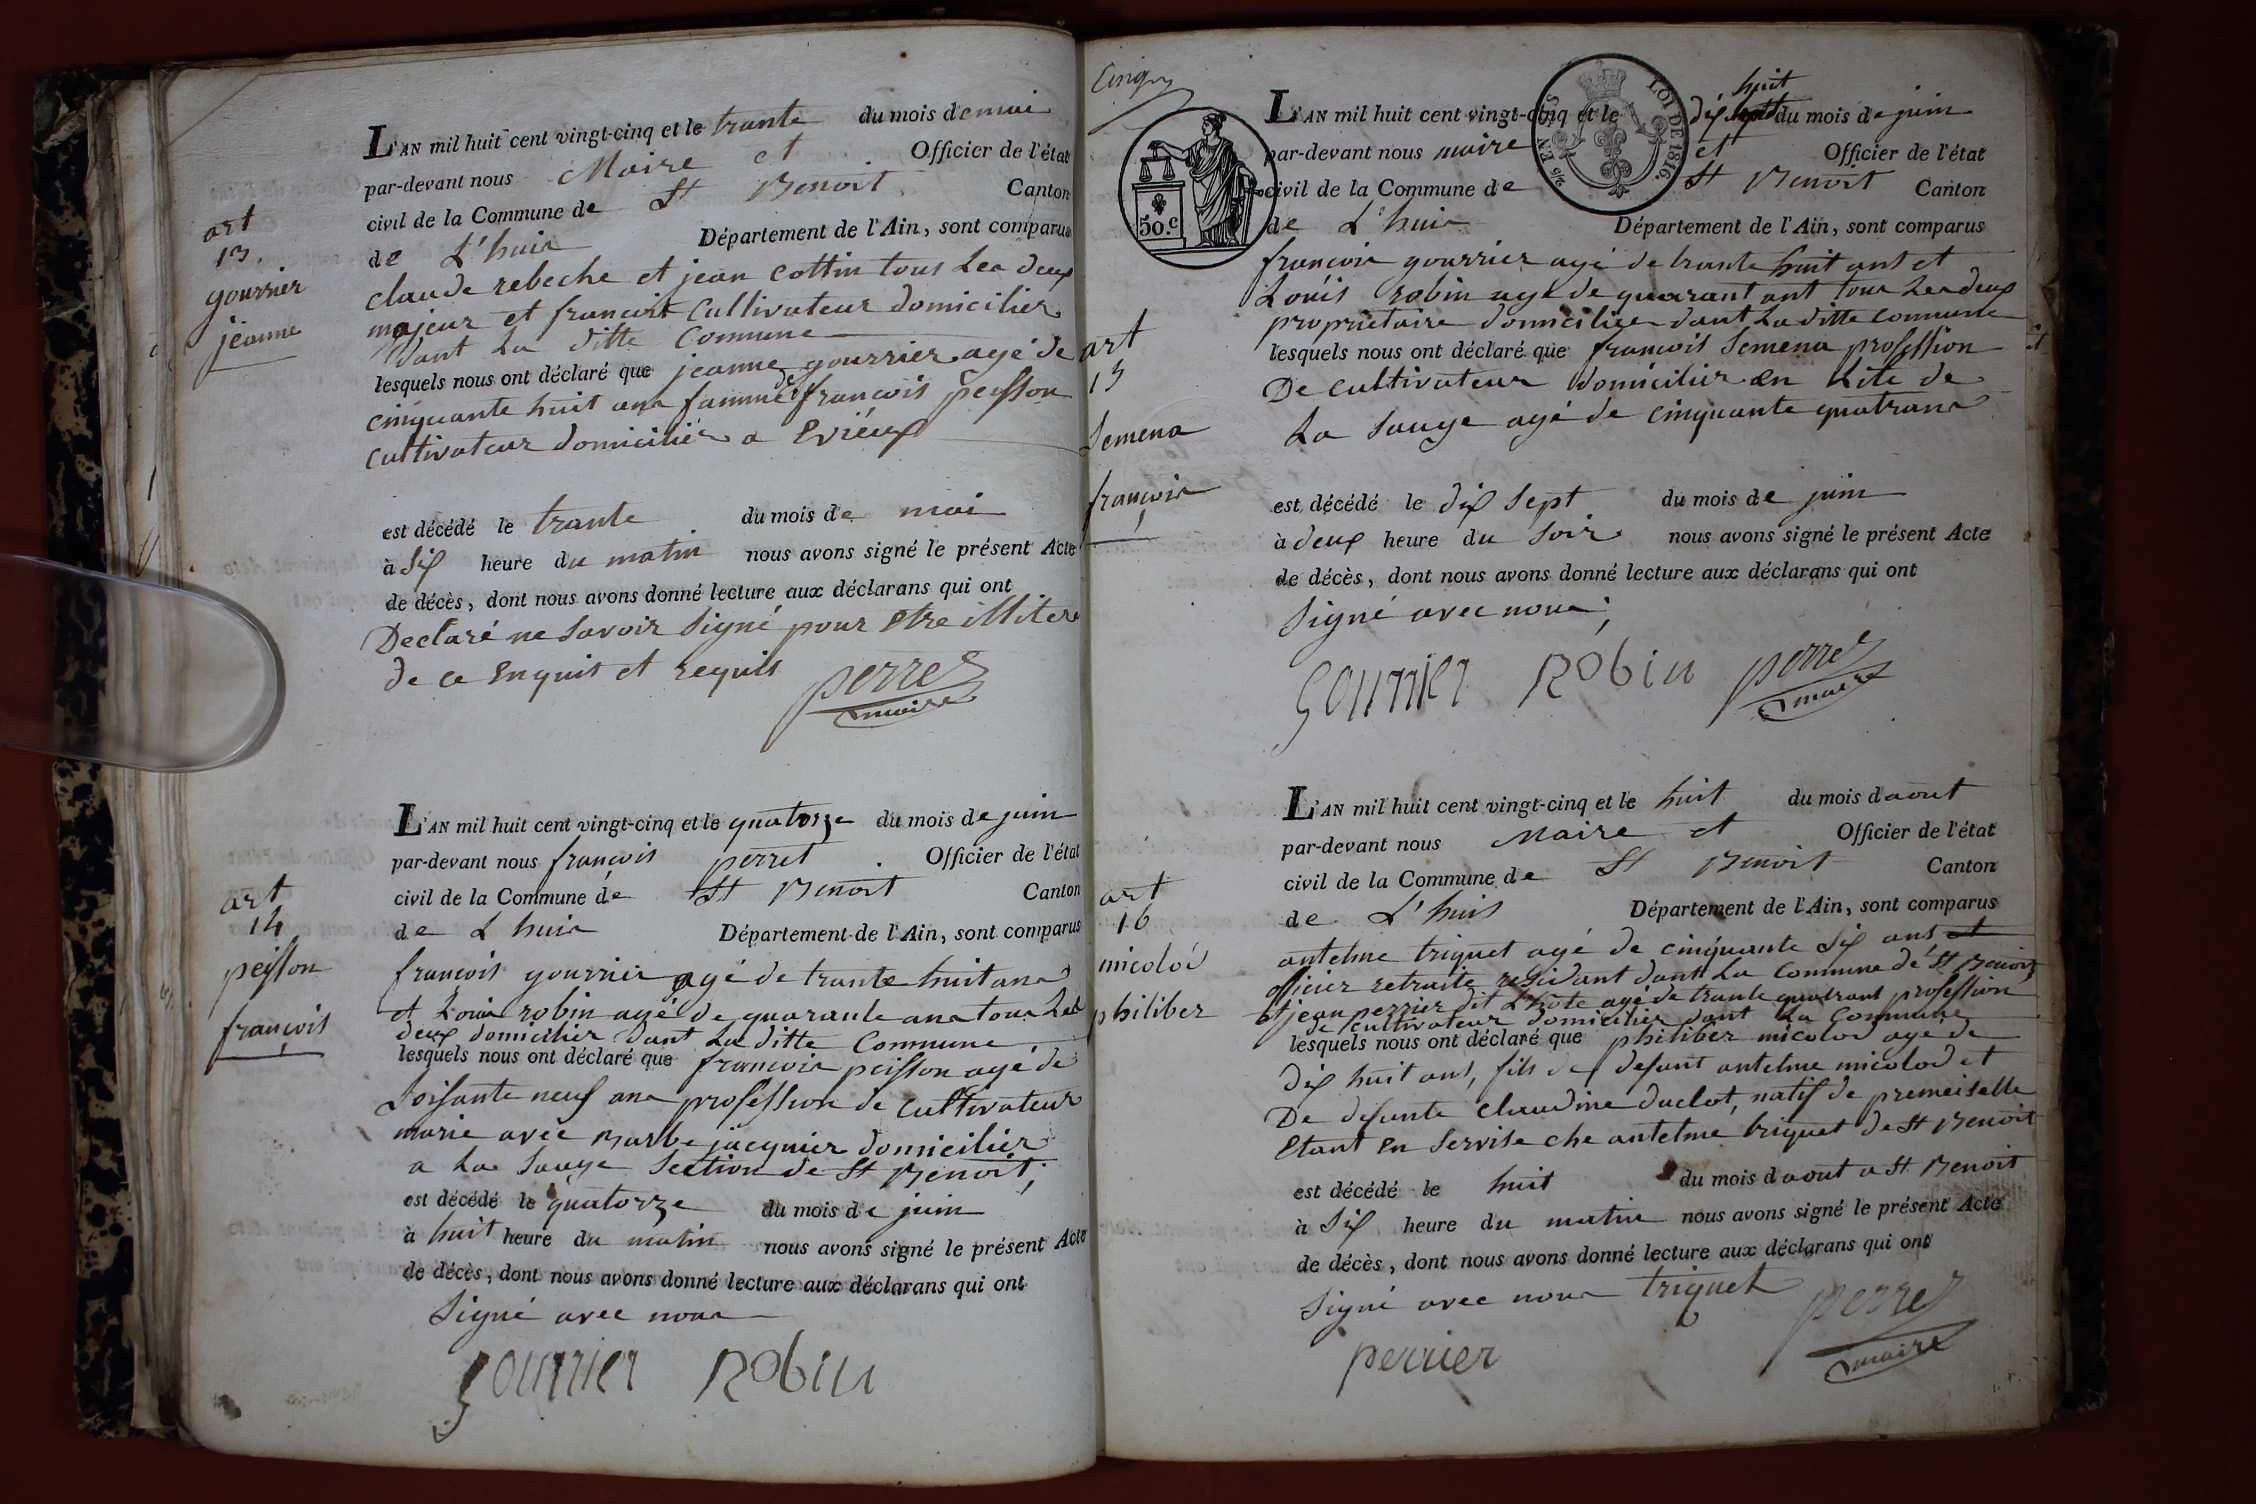 art
13.
gourrier
jeanne
L'AN mil huit cent vingt-cinq et le trante du mois de mai
par-devant nous Maire et Officier de l'état
civil de la Commune de St Benoit Canton
de L'huis Département de l'Ain, sont comparus
claude rebeche et jean cottin tous Les deux
majeur et francoist Cultivateur domicilier
dant La ditte Commune
lesquels nous ont déclaré que jeanne gourrier agé de
cinquante huit ans famme de françois peisson
cultivateur domicilier a Evieux
est décédé le trante du mois de mai
à Six heure du matin nous avons signé le présent Acte
de décès, dont nous avons donné lecture aux déclarans qui ont
Declaré ne Savoir Signé pour Etre illitere
de ce Enquis et requis perret
maire
art
14
peisson
françois
L'AN mil huit cent vingt-cinq et le quatorze du mois de juin
par-devant nous françois perret Officier de l'état
civil de la Commune de St Benoit Canton
de L huis Département de l'Ain, sont comparus
françois gourrier agé de trante huit ans
et Louis robin agé de quarante ans tous Les
deux domicilier dant La ditte Commune
lesquels nous ont déclaré que francois peisson agé de
Soisante neuf ans profession de Cultivateur
marie avec Barbe jacquier domicilier
a La Sauge Section de St Benoit;
est décédé le quatorze du mois de juin
à huit heure du matin nous avons signé le présent Acte
de décès, dont nous avons donné lecture aux déclarans qui ont
Signé avec nous
gourrier Robin
50.c
LOI DE 1816.
art
15
Semena
françois
huit
L'AN mil huit cent vingt-cinq et le dix sept du mois de juin
par-devant nous maire et Officier de l'état
civil de la Commune de St Benoit Canton
de L'huis Département de l'Ain, sont comparus
françois gourrier agé de trante huit ans et
Louis robin agé de quarant ant tous Les deux
proprietaire domicilier dant La ditte commune
lesquels nous ont déclaré que francois Semena profession
De cultivateur domicilier en Lile de
La Sauge agé de cinquante quatrans
est décédé le dix Sept du mois de juin
à deux heure du Soir nous avons signé le présent Acte
de décès, dont nous avons donné lecture aux déclarans qui ont
Signé avec nous;
gourrier Robin perret
maire
art
16
micolod
philiber
L'AN mil huit cent vingt-cinq et le huit du mois d'aout
par-devant nous Maire et Officier de l'état
civil de la Commune de St Benoit Canton
de L'huis Département de l'Ain, sont comparus
antelme triquet agé de cinquante Six ans et
officier retraite residant dant La Commune de St Benoit
et jean perrier dit L'hote agé de trante quatrans profession
de cultivateur domicilier dant La Commune
lesquels nous ont déclaré que philiber micolod agé de
dix huit ans, fils de defunt antelme micolod et
De defunte Claudine duclot, natif de premeiselle
Etant En Servise che antelme triquet de St Benoit
est décédé le huit du mois d'aout a St Benoit
à Six heure du matin nous avons signé le présent Acte
de décès, dont nous avons donné lecture aux déclarans qui ont
Signé avec nous triquet perret
perrier maire